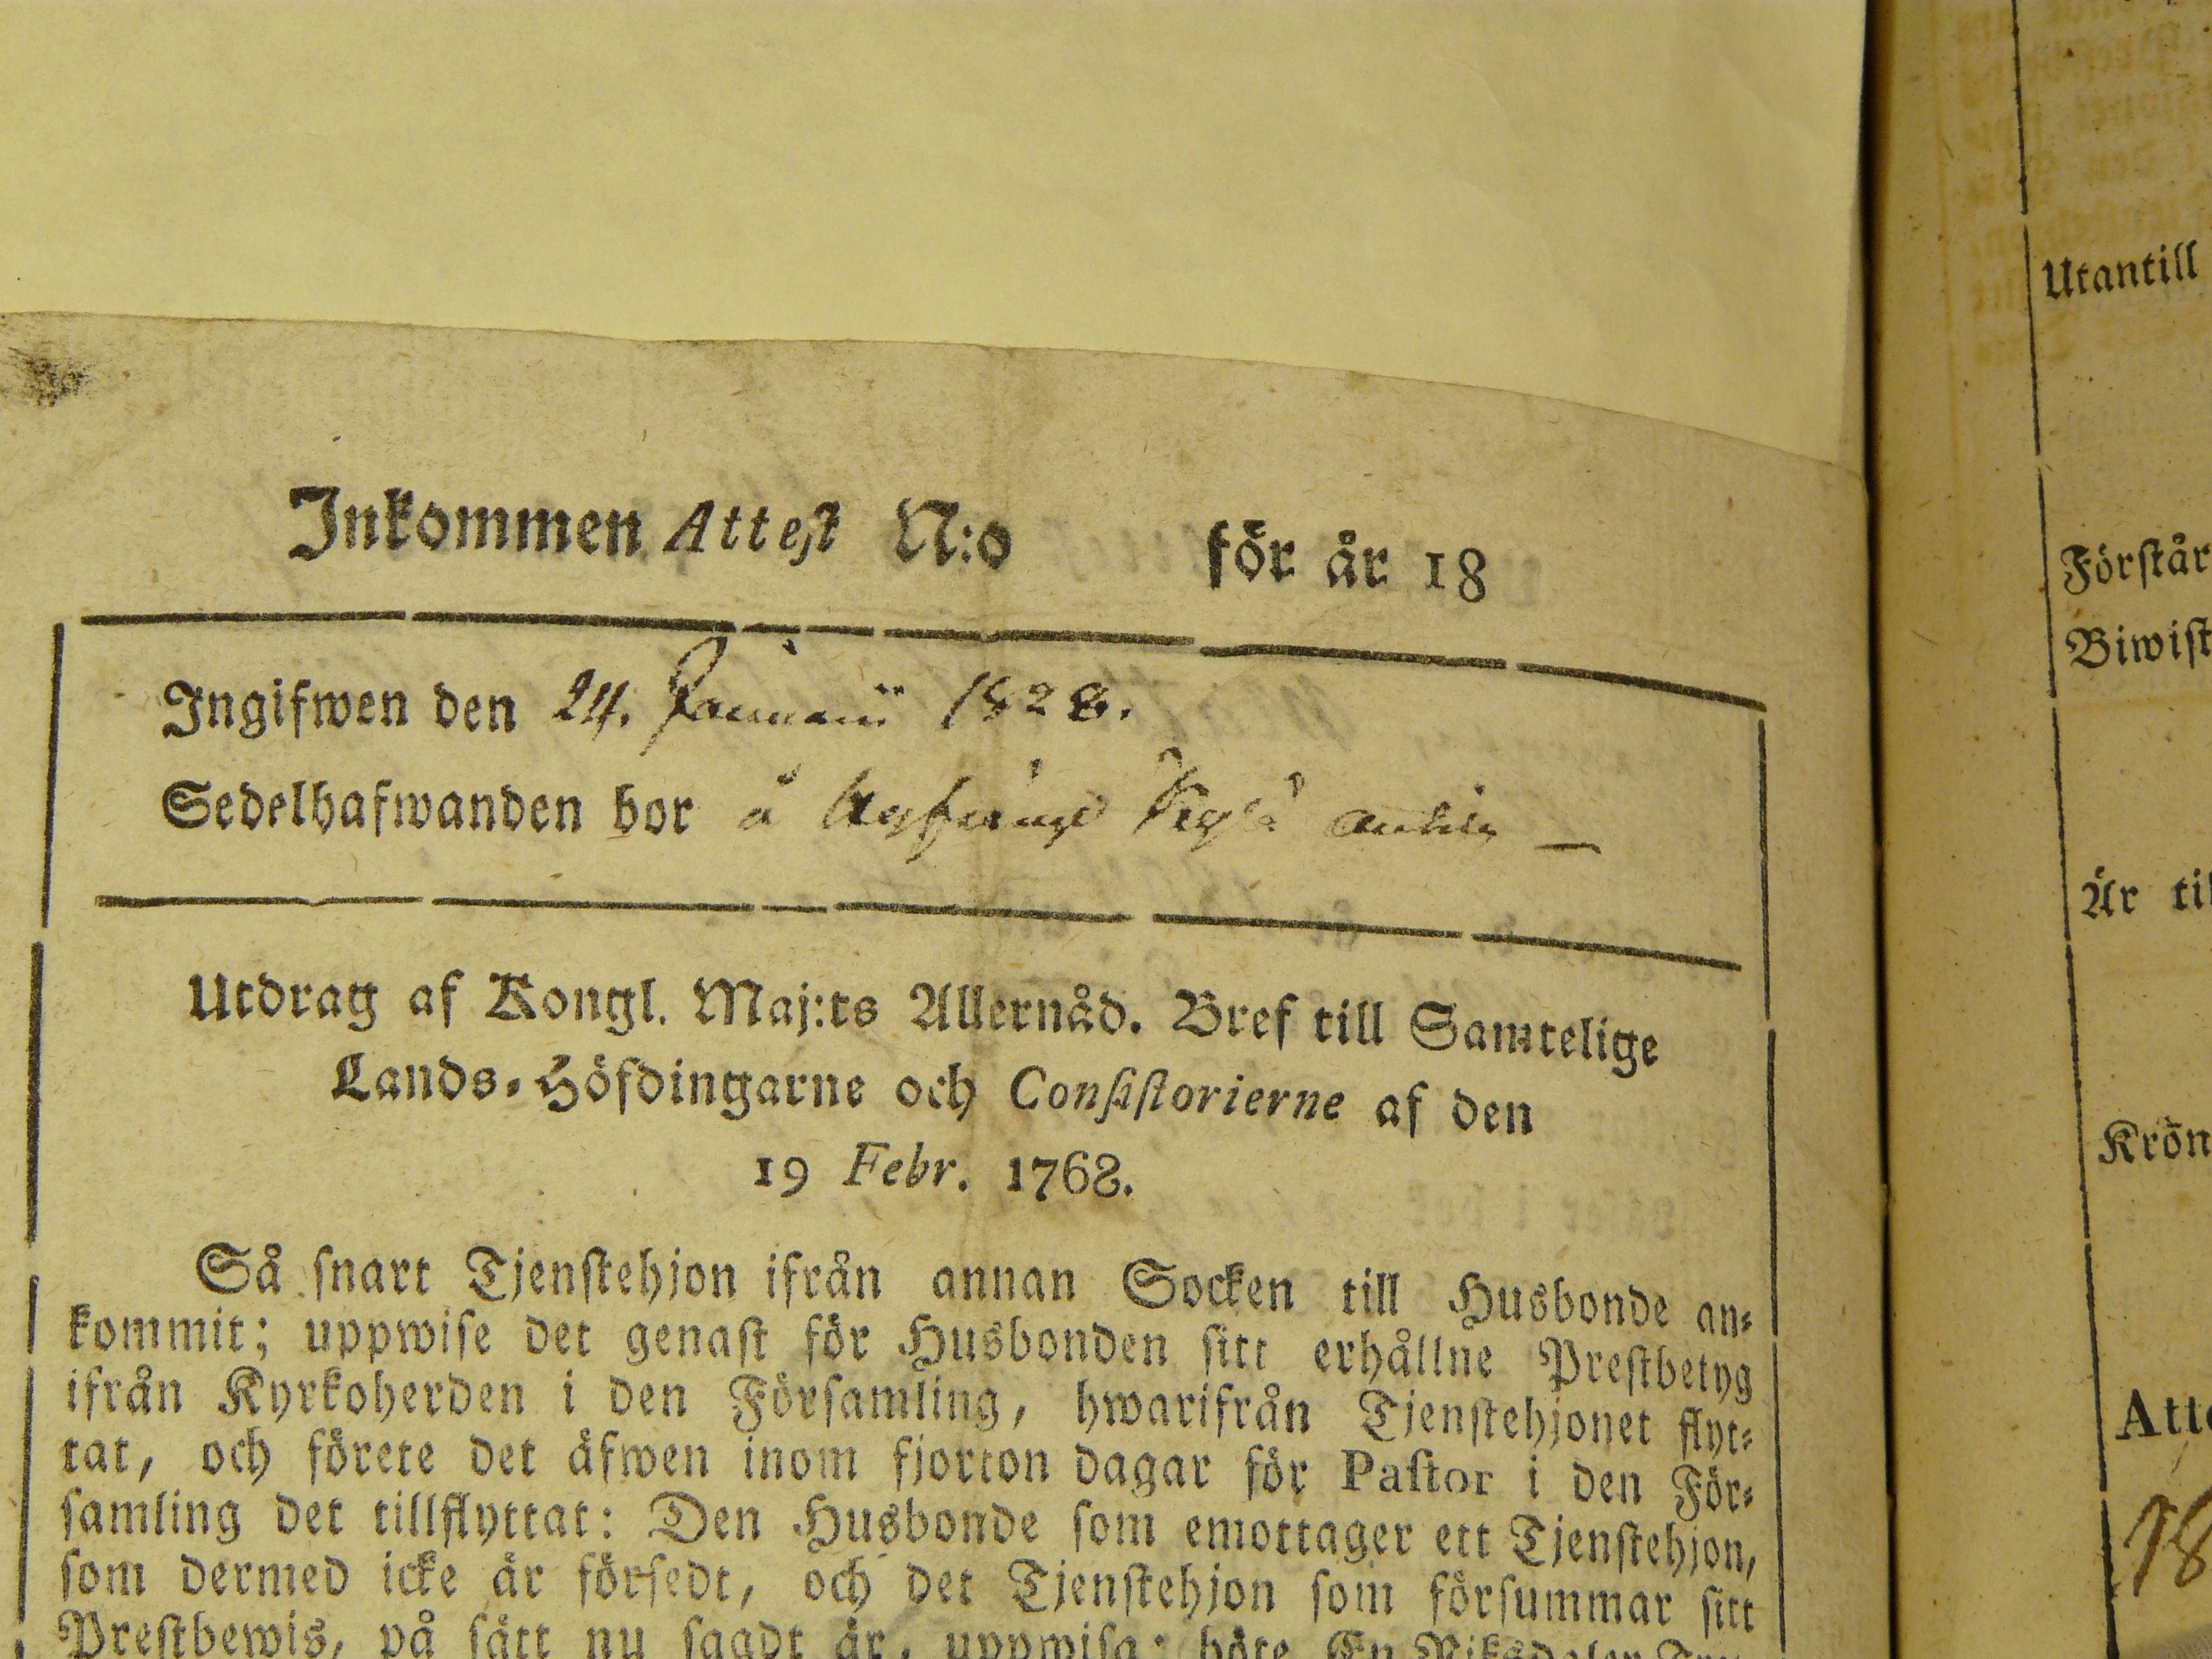 Inkommen Attest N:o för år 18
Ingifwen den 24. Januarii 1828.
Sedelhafwanden bor å
Utdrag af Kongl. Maj:ts Allernåd. Bref till Samtelige
Lands-Höfdingarne och Consistorierne af den
19 Febr. 1768.
Så snart Tjenstehjon ifrån annan Socken till Husbonde an-
kommit; uppwise det genast för Husbonden sitt erhållne Prestbetyg
ifrån Kyrkoherden i den Församling, hwarifrån Tjenstehjonet flyt-
tat, och förete det äfwen inom fjorton dagar för Pastor i den För-
samling det tillflyttat: Den Husbonde som emottager ett Tjenstehjon,
som dermed icke är försedt, och det Tjenstehjon som försummar sitt
Prestbewis, på sätt nu sagdt är, uppwisa; böte En Riksdaler
Utantill
Förstår
Biwist
Är til
Krön
Atte
18